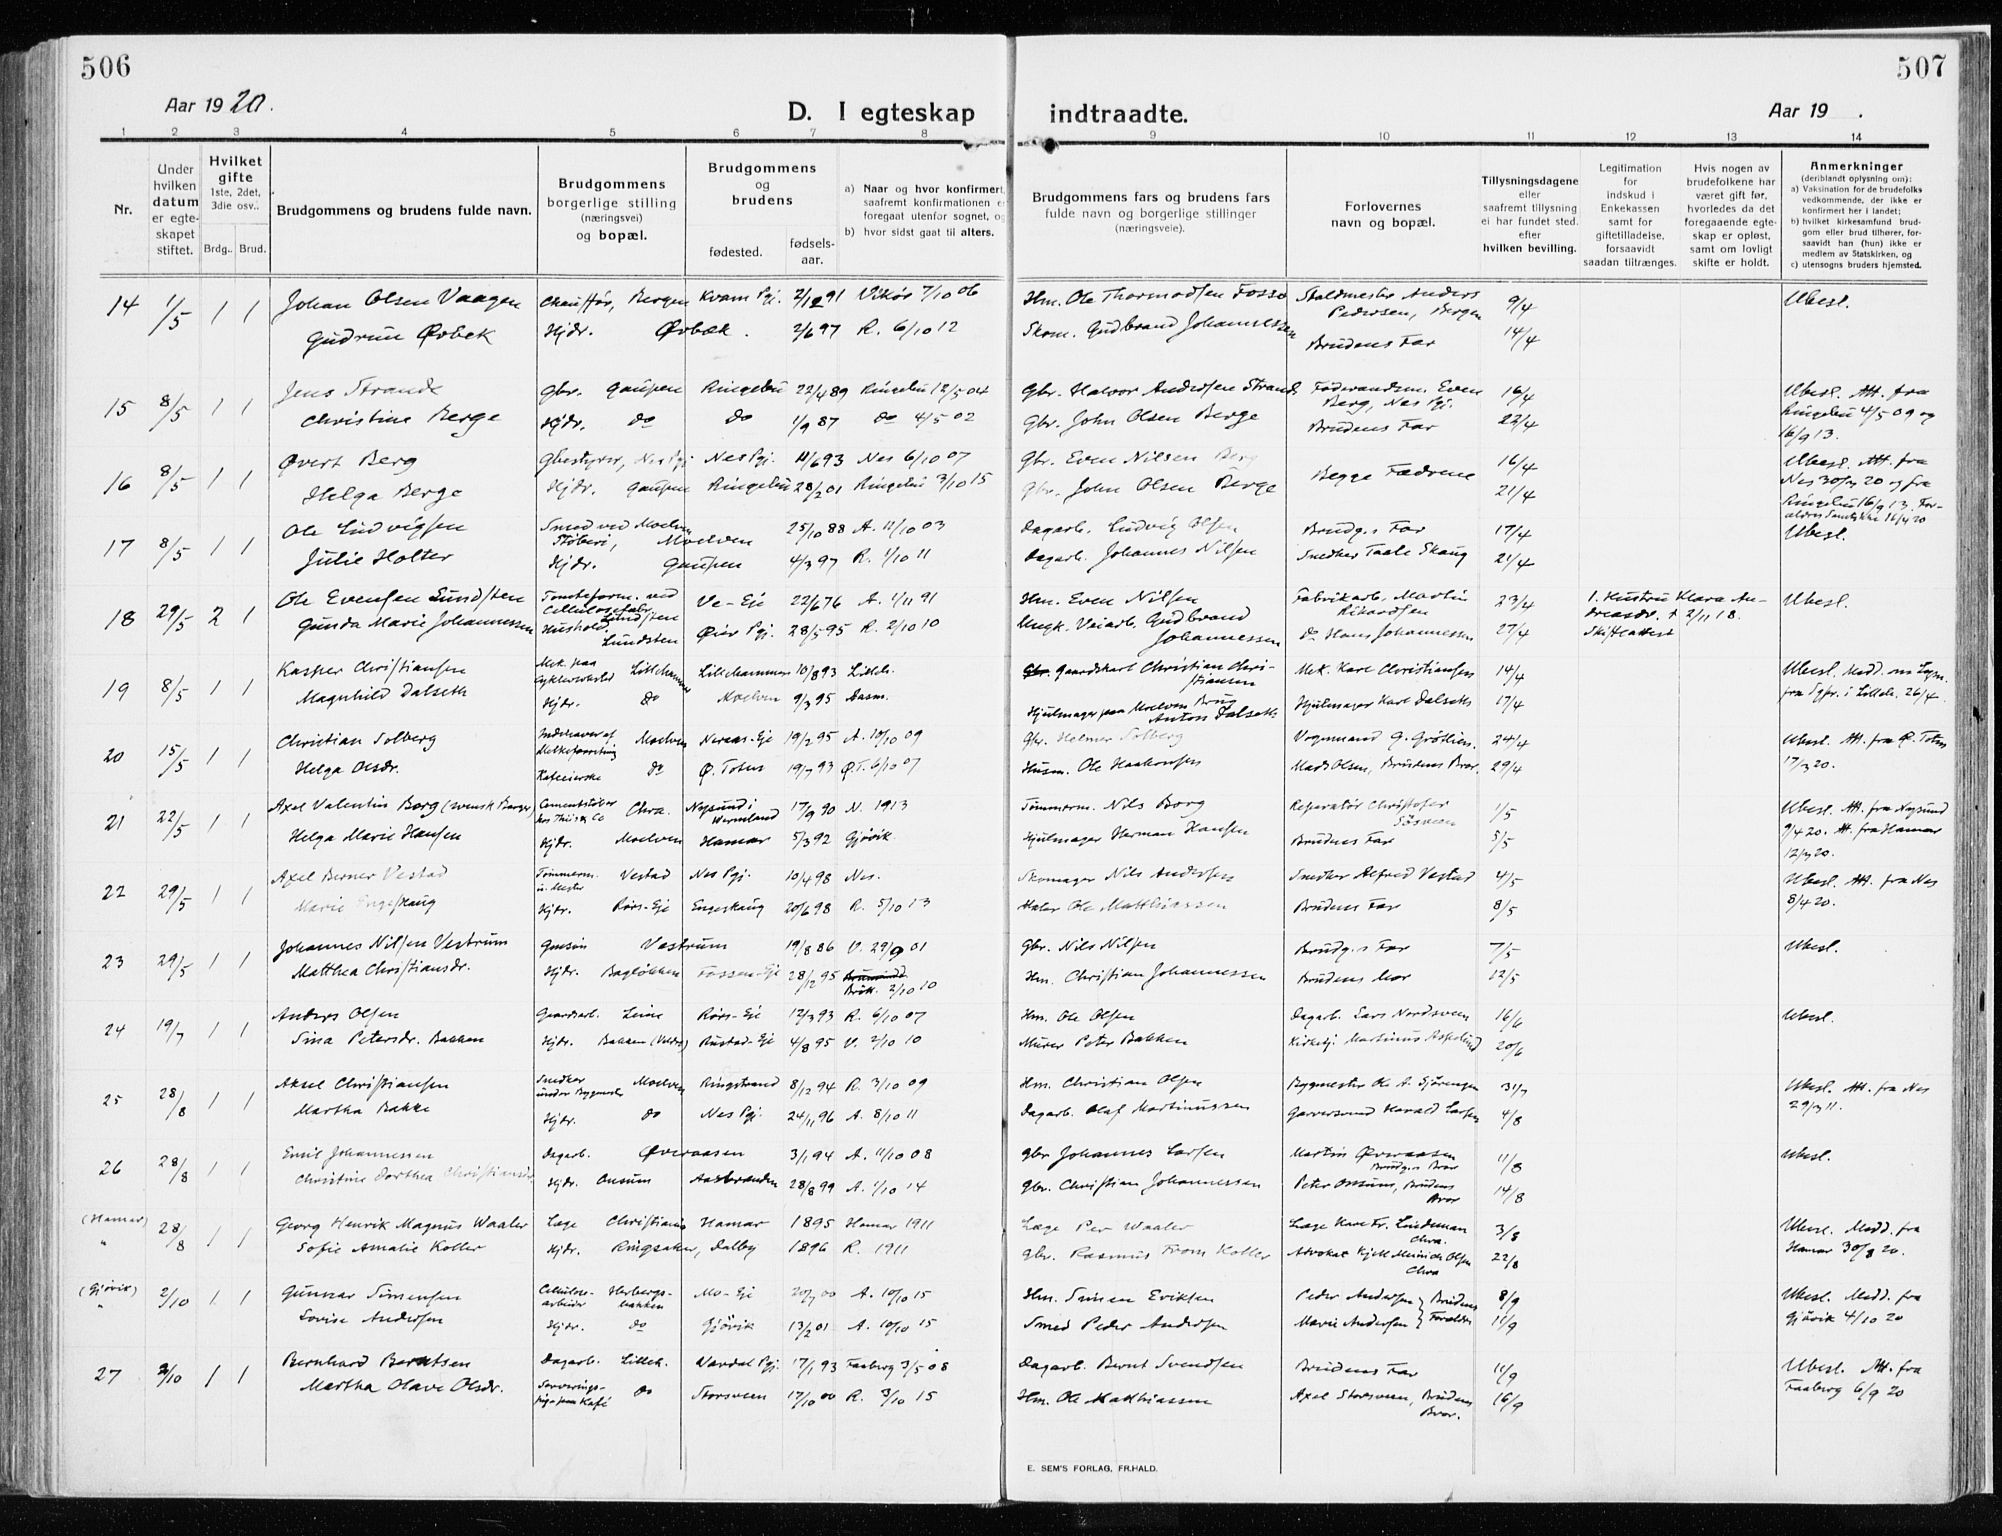 506
507
Aar 1920.
D. I egteskap indtraadte.
Aar 19 .
1 2 3 4 5 6 7 8 9 10 11 12 13 14
Nr.
Under hvilken datum er egteskapet stiftet.
Hvilket gifte 1ste, 2det, 3die osv..
Brdg.. Brud.
Brudgommens og brudens fulde navn.
Brudgommens borgerlige stilling (næringsvei) og bopæl.
Brudgommens og brudens
fødested.
fødselsaar.
a) Naar og hvor konfirmert, saafremt konfirmationen er foregaat utenfor sognet, og
b) hvor sidst gaat til alters.
Brudgommens fars og brudens fars fulde navn og borgerlige stillinger (næringsveie).
Forlovernes navn og bopæl.
Tillysningsdagene eller saafremt tillysning ei har fundet sted. efter hvilken bevilling.
Legitimation for indskud i Enkekassen samt for giftetilladelse, forsaavidt saadan tiltrænges.
Hvis nogen av brudefolkene har været gift før, hvorledes da det foregaaende egteskap er opløst, samt om lovligt skifte er holdt.
Anmerkninger (deriblandt oplysning om): a) Vaksination for de brudefolks vedkommende, der ikke er konfirmert her i landet; b) hvilket kirkesamfund brudgom eller brud tilhører, forsaavidt han (hun) ikke er medlem av Statskirken, og c) utensogns bruders hjemsted.
14 1/5 1 1 Johan Olsen Vaagen Chauffør, Bergen Kvam Pgj. 2/12 91 Vikør 7/10 06 Hm. Ole Thormodsen Fosse Staldmester Anders Pedersen, Bergen 9/4 Ubesl.
Gudrun Øvbek Hjdr. Øvbæk. 2/6 97 R. 6/10 12 Skom. Gudbrand Johannessen Brudens Far 14/4
15 8/5 1 1 Jens Strande Gbr. Gaupen Ringebu 22/4 89 Ringebu 12/5 04 Gbr. Halvor Andersen Strande Føderaadsm. Even Berg, Nes Pgj. 16/4 Ubesl. Att. fra Ringebu 4/5 09 og 16/9 13.
Christine Berge Hjdr. do do 1/9 87 do 4/5 02 Gbr. John Olsen Berge Brudens Far 22/4
16 8/5 1 1 Øvert Berg Gbestyrer, Nes Pgj. Nes Pgj. 11/6 93 Nes 6/10 07 Gbr. Even Nilsen Berg Begge Fædrene 16/4 Ubesl. Att. fra Nes 30/3 20 og fra Ringebu 16/9 13. Forældres Samtykke 16/4 20
Helga Berge Hjdr. Gaupen Ringebu 28/2 01 Ringebu 3/10 15 Gbr. John Olsen Berge 21/4
17 8/5 1 1 Ole Ludvigsen Smed ved Moelven Støberi, Moelven 25/10 88 A. 11/10 03 Dagarb. Ludvig Olsen Brudg.s Far 17/4 Ubesl.
Julie Holter Hjdr. Gaupen 4/3 97 R. 1/10 11 Dagarb. Johannes Nilsen Snedker Taale Skaug 21/4
18 29/5 2 1 Ole Evensen Lundsten Tomteform. ved Cellulosefabr. Lundsten Ve-Eje 22/6 76 A. 1/11 91 Hm. Even Nilsen Fabrikarb. Martin Rikardsen 23/4 1. Hustru Klara Andreasdr. † 2/11 18. Skifteattest Ubesl.
Gunda Marie Johannessen Hushold. Lundsten Øier Pgj. 28/5 95 R. 2/10 10 Ungk. Veiarb. Gudbrand Johannessen do Hans Johannessen 27/4
19 8/5 1 1 Kasper Christiansen Mek. paa Cykleverksted Lillehammer Lillehammer 10/8 93 Lilleh. Gaardskarl Christian Christiansen Mek. Karl Christiansen 14/4 Ubesl. Medd. om Lysn. fra Sgpr. i Lilleh. 26/4.
Magnhild Dalseth Hjdr. do Moelven 9/3 95 Aasm. Hjulmager paa Moelven Brug Anton Dalseth Hjulmager Karl Dalseth 17/4
20 15/5 1 1 Christian Solberg Indehaver af Melkeforretning Moelven Neraas-Eje 19/2 95 A. 10/10 09 Gbr. Helmer Solberg Vognmand G. Grøtlien 24/4 Ubesl. Att. fra Ø. Toten 17/3 20.
Helga Olsdr. Kafeeierske do Ø. Toten 19/7 93 Ø.T. 6/10 07 Husm. Ole Haakonsen Mads Olsen, Brudens Bror. 29/4
21 22/5 1 1 Axel Valentin Borg (svensk Borger) Cementstøber hos Thiis & Co Chra. Nysund i Wermland 17/9 90 N. 1913 Tømmerm. Nils Borg Reparatør Christofer Søsveen 1/5 Ubesl. Att. fra Nysund 9/4 20. Att. fra Hamar 12/4 20.
Helga Marie Hansen Hjdr. Moelven Hamar 5/3 92 Gjøvik. Hjulmager Herman Hansen Brudens Far 5/5
22 29/5 1 1 Axel Berner Vestad Tømmerm. u. Mester Vestad Nes Pgj. 10/4 98 Nes. Skomager Nils Andersen Snedker Alfred Vestad 4/5 Ubesl. Att. fra Nes 8/4 20.
Marie Engeskaug Hjdr. Rørs-Eje Engeskaug 20/6 98 R. 5/10 13 Maler Ole Matthiassen Brudens Far 8/5
23 29/5 1 1 Johannes Nilsen Vestrum Gmsøn Vestrum 19/8 86 V. 29/9 01 Gbr. Nils Nilsen Brudg.s Far 7/5 Ubesl.
Matthea Christiansdr. Hjdr. Bagløkken Fossen-Eje 28/12 95 Brøt. 2/10 10 Hm. Christian Johannessen Brudens Mor 12/5
24 19/7 1 1 Anders Olsen Gaardsarb. Leine Rørs-Eje 12/3 93 R. 6/10 07 Hm. Ole Olsen Dagarb. Lars Nordsveen 16/6 Ubesl.
Sina Petersdr. Bakken Hjdr. Bakken (Veldre) Rustad-Eje 4/8 95 V. 2/10 10 Murer Peter Bakken Kirketj. Martinus Aspelund 20/6
25 28/8 1 1 Aksel Christiansen Snedker under Bygmester Moelven Ringstrand 8/12 94 R. 3/10 09 Hm. Christian Olsen Bygmester Ole A. Gjørensen 31/7 Ubesl. Att. fra Nes 29/3 11.
Martha Bakke Hjdr. do Nes Pgj. 24/11 96 A. 8/10 11 Dagarb. Olaf Martinussen Garversvend Harald Larsen 4/8
26 28/8 1 1 Emil Johannessen Dagarb. Øveraasen 3/1 94 A. 11/10 08 Gbr Johannes Larsen Martin Øveraasen Brudg.s Bror 11/8 Ubesl.
Christine Dorthea Christiansdr. Hjdr. Onsum Aasbranden 28/8 99 A. 1/10 14 Gbr. Christian Johannessen Peter Onsum, Brudens Bror 14/8
(Hamar) " 28/8 1 1 Georg Henrik Magnus Waaler Læge Christiania Hamar 1895 Hamar 1911 Læge Per Waaler Læge Karl Fr. Lindeman Chra. 3/8 Ubesl. Medd. fra Hamar 30/8 20.
Sofie Amalie Koller Hjdr. Ringsaker, Dalby 1896 R. 1911 Gbr. Rasmus From Koller Advokat Kjell Meinich Olsen Chra 22/8
(Gjøvik) " 2/10 1 1 Gunnar Simensen Cellulosearbeider Herbergsbakken Mo-Eje 20/7 00 A. 10/10 15 Hm. Simen Eriksen Peder Andersen } Brudens Forældre 8/9 Ubesl. Medd. fra Gjøvik 4/10 20
Lovise Andersen Hjdr. do Gjøvik 13/2 01 A. 10/10 15 Smed Peder Andersen Marie Andersen 11/9
27 2/10 1 1 Bernhard Berntsen Dagarb. Lilleh. Vardal Pgj. 17/1 93 Faaberg 3/5 08 Dagarb. Bernt Svendsen Brudens Far 11/9 Ubesl. Att. fra Faaberg 6/9 20
Martha Olave Olsdr. Serveringspige paa Kafé do Storsveen 17/10 00 R. 3/10 15 Hm. Ole Matthiassen Axel Storsveen, Brudens Bror. 16/9
E. SEM'S FORLAG, FR.HALD.